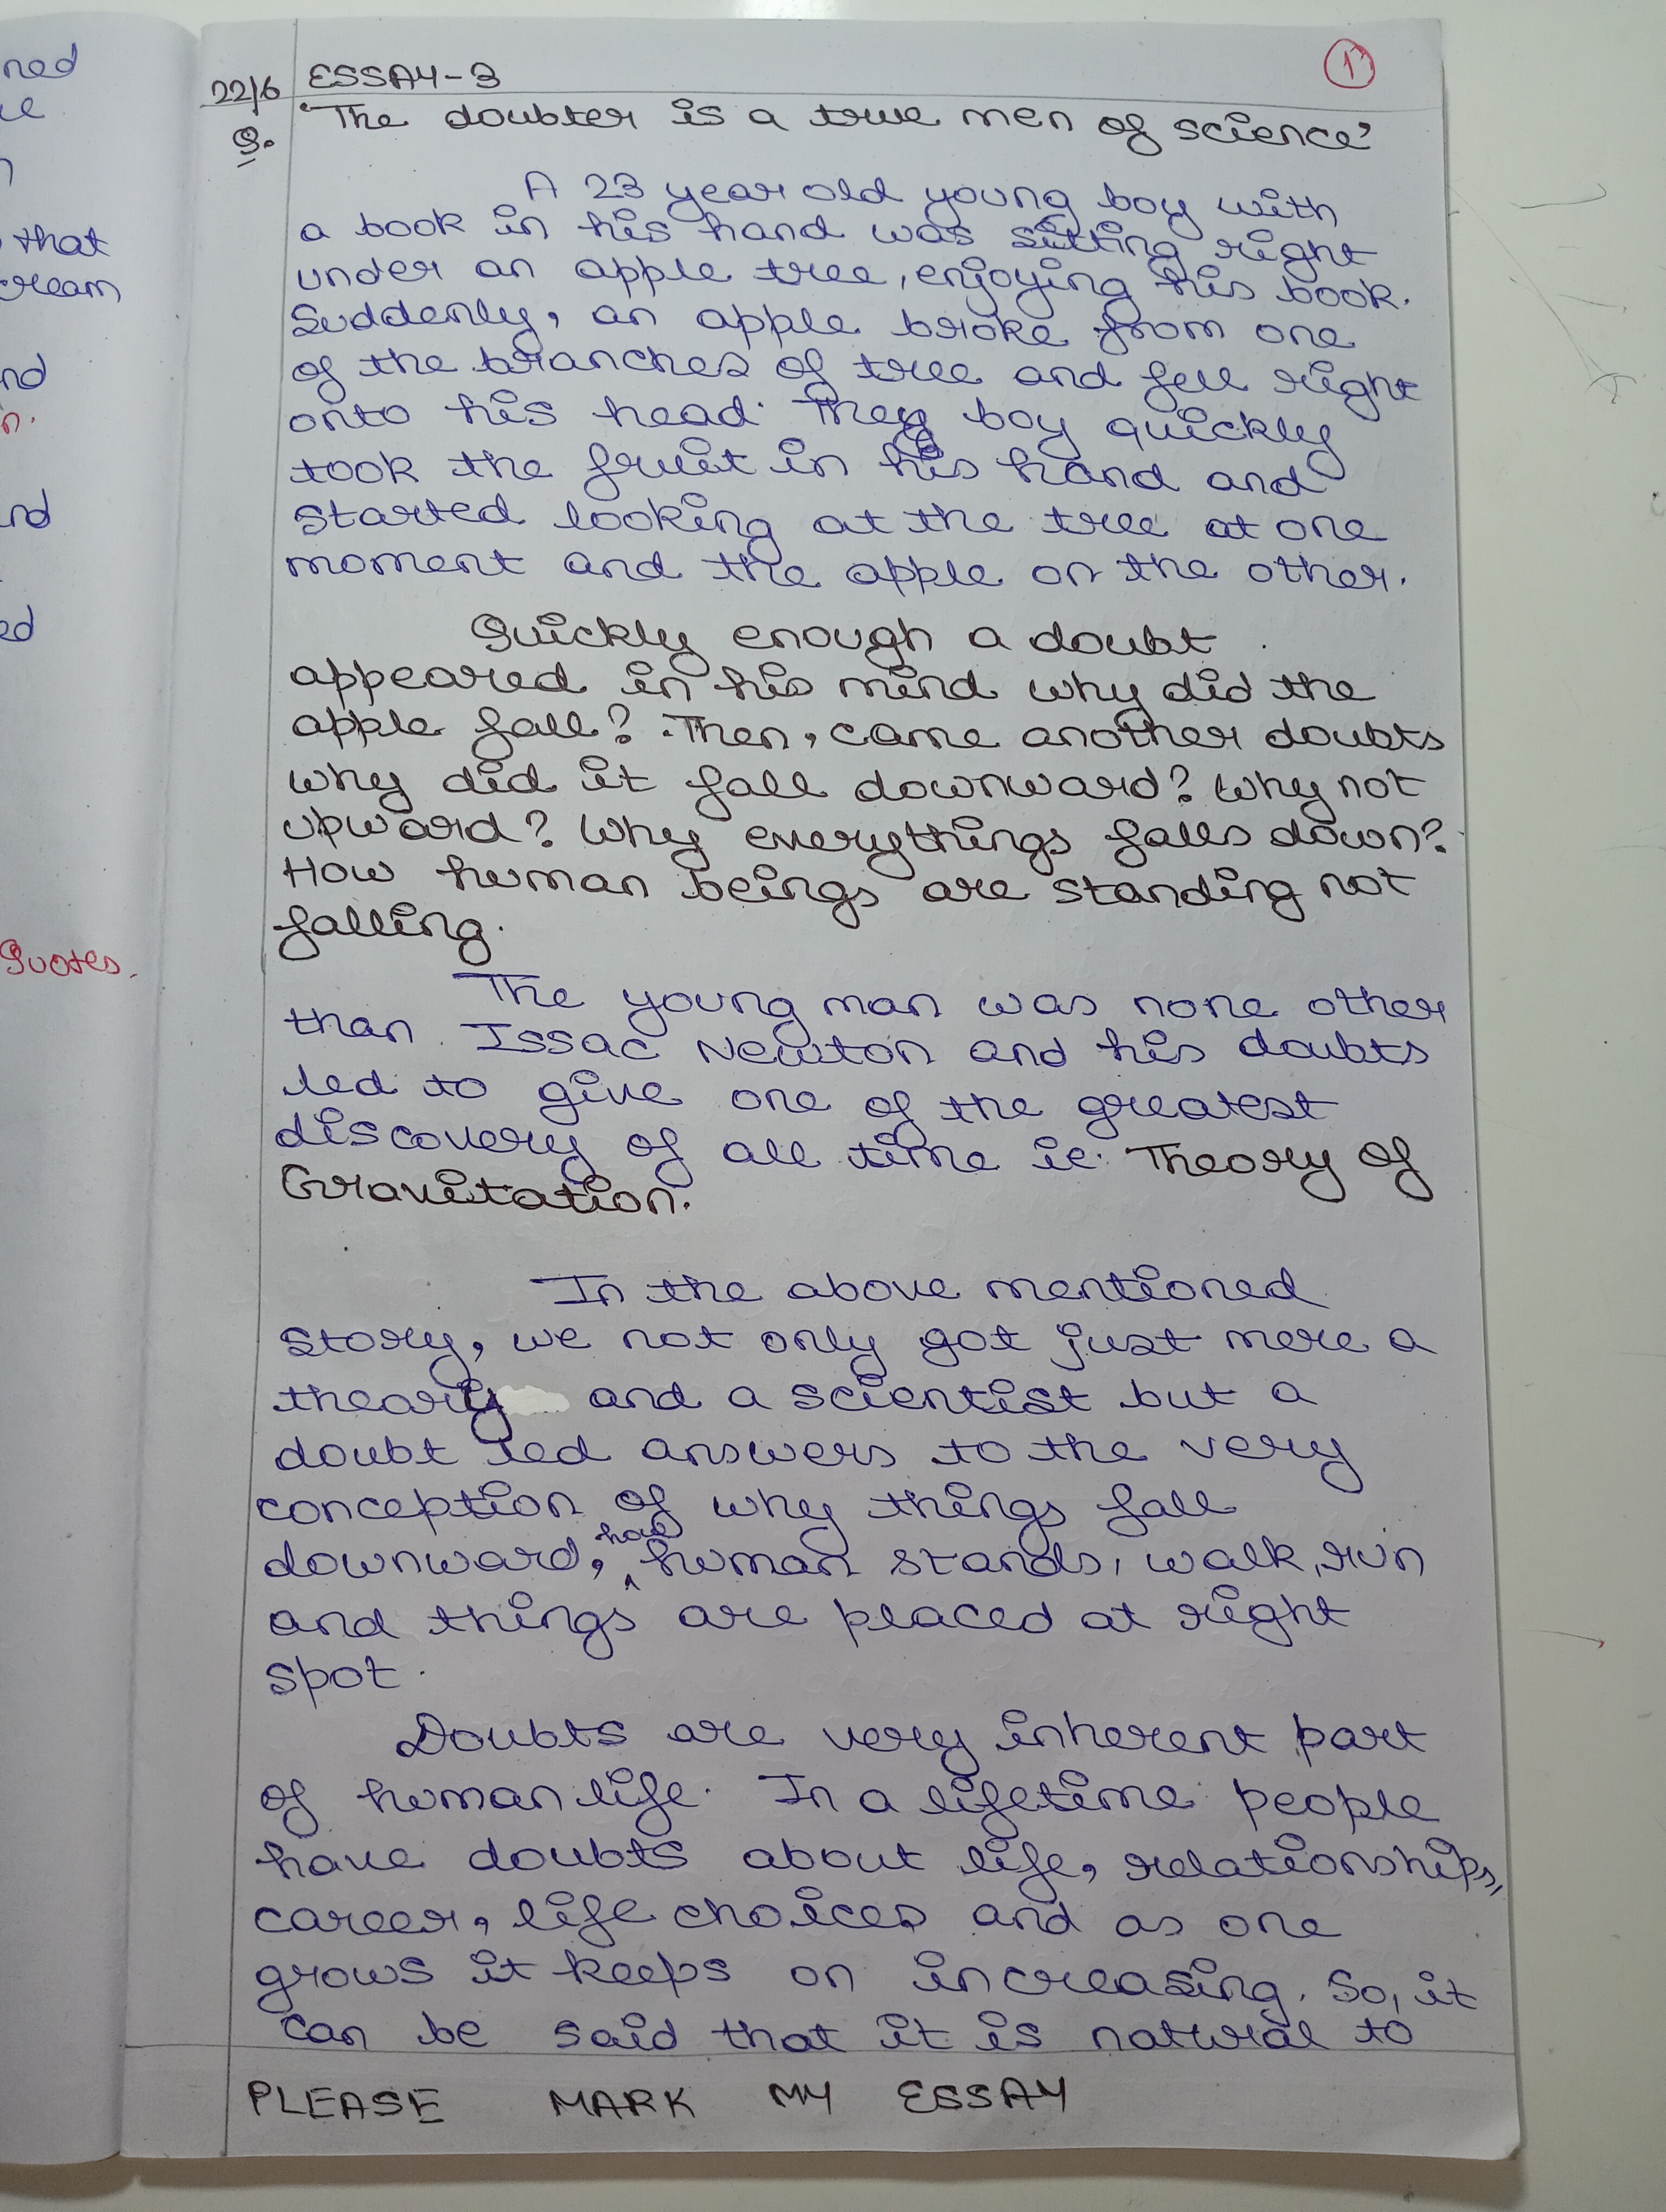 ned
ue
that
cream
nd
n.
nd
ed
Quotes.
1
22/6 ESSAY-3
Q. 'The doubter is a true men of science'
A 23 year old young boy with
a book in his hand was sitting right
under an apple tree, enjoying his book.
Suddenly, an apple broke from one
of the branches of tree and fell right
onto his head. They boy quickly
took the fruit in his hand and
started looking at the tree at one
moment and the apple on the other.
Quickly enough a doubt
appeared in his mind why did the
apple fall? Then, came another doubts
why did it fall downward? Why not
upward? Why everythings falls down?
How human beings are standing not
falling.
The young man was none other
than Issac Newton and his doubts
led to give one of the greatest
discovery of all time ie. Theory of
Gravitation.
In the above mentioned
story, we not only got just mere a
theory and a scientist but a
doubt led answers to the very
conception of why things fall
downward, how human stands, walk, run
and things are placed at right
spot.
Doubts are very inherent part
of human life. In a lifetime people
have doubts about life, relationships,
career, life choices and as one
grows it keeps on increasing. So, it
can be said that it is natural to
PLEASE MARK MY ESSAY